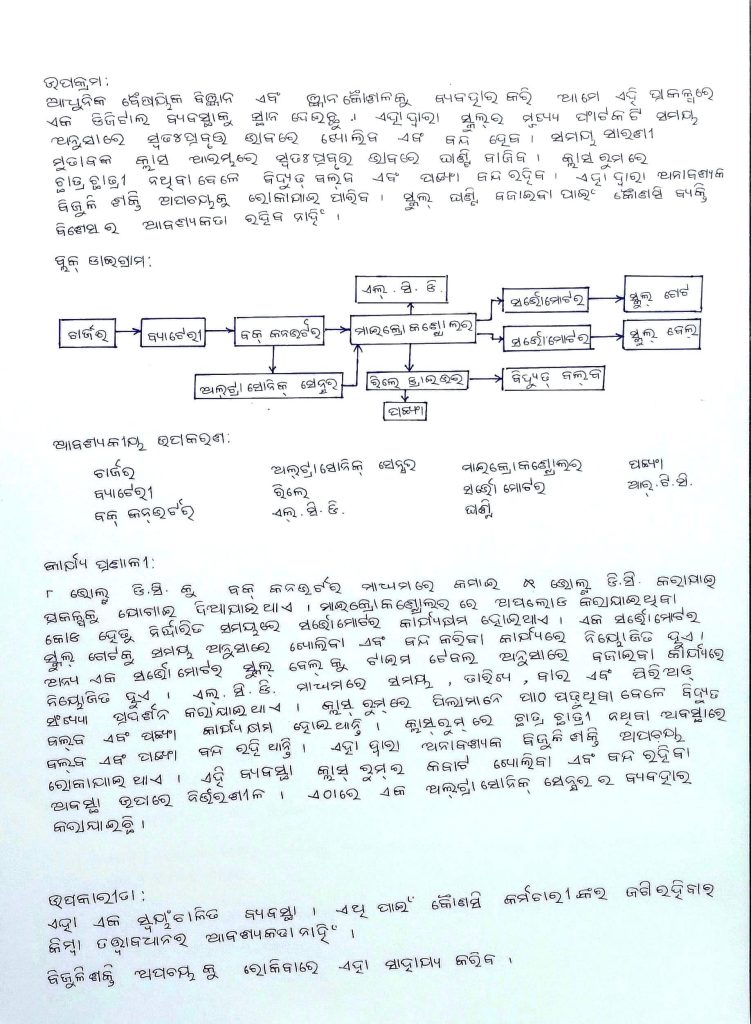 ଉପକ୍ରମ:
ଆଧୁନିକ ବୈଷୟିକ ବିଜ୍ଞାନ ଏବଂ ଜ୍ଞାନକୌଶଳକୁ ବ୍ୟବହାର କରି ଆମେ ଏହି ପ୍ରକଳ୍ପରେ
ଏକ ଡିଜିଟାଲ ବ୍ୟବସ୍ଥାକୁ ସ୍ଥାନ ଦେଇଛୁ । ଏହା ଦ୍ୱାରା ସ୍କୁଲ୍‌ର ମୁଖ୍ୟ ଫାଟକଟି ସମୟ
ଅନୁସାରେ ସ୍ୱତଃପ୍ରବୃତ୍ତ ଭାବରେ ଖୋଲିବ ଏବଂ ବନ୍ଦ ହେବ । ସମୟ ସାରଣୀ
ମୁତାବକ କ୍ଲାସ ଆରମ୍ଭରେ ସ୍ୱତଃପ୍ରବୃତ୍ତ ଭାବରେ ଘଣ୍ଟି ବାଜିବ । କ୍ଲାସ୍‌ ରୁମ୍‌ରେ
ଛାତ୍ରଛାତ୍ରୀ ନଥିବା ବେଳେ ବିଦ୍ୟୁତ୍ ବଲ୍‌ବ ଏବଂ ପଙ୍ଖା ବନ୍ଦ ରହିବ । ଏହା ଦ୍ୱାରା ଅନାବଶ୍ୟକ
ବିଜୁଳି ଶକ୍ତି ଅପଚୟକୁ ରୋକାଯାଇ ପାରିବ । ସ୍କୁଲ୍ ଘଣ୍ଟି ବଜାଇବା ପାଇଁ କୌଣସି ବ୍ୟକ୍ତି
ବିଶେଷର ଆବଶ୍ୟକତା ରହିବ ନାହିଁ ।
ବ୍ଲକ୍ ଡାଇଗ୍ରାମ:
ଏଲ୍.ସି.ଡି.
ଚାର୍ଜର୍ ବ୍ୟାଟେରୀ ବକ୍ କନଭର୍ଟର ମାଇକ୍ରୋକଣ୍ଟ୍ରୋଲର ସର୍ଭୋମୋଟର ସ୍କୁଲ୍ ଗେଟ
ସର୍ଭୋମୋଟର ସ୍କୁଲ୍ ବେଲ୍
ଅଲ୍‌ଟ୍ରାସୋନିକ୍ ସେନ୍ସର ରିଲେ ଡ୍ରାଇଭର ବିଦ୍ୟୁତ୍ ବଲ୍‌ବ
ପଙ୍ଖା
ଆବଶ୍ୟକୀୟ ଉପକରଣ:
ଚାର୍ଜର୍ ଅଲ୍‌ଟ୍ରାସୋନିକ୍ ସେନ୍ସର ମାଇକ୍ରୋକଣ୍ଟ୍ରୋଲର ପଙ୍ଖା
ବ୍ୟାଟେରୀ ରିଲେ ସର୍ଭୋ ମୋଟର ଆର୍.ଟି.ସି.
ବକ୍ କନ୍‌ଭର୍ଟର ଏଲ୍.ସି.ଡି. ଘଣ୍ଟି
କାର୍ଯ୍ୟ ପ୍ରଣାଳୀ:
୮ ଭୋଲ୍ଟ ଡି.ସି. କୁ ବକ୍ କନଭର୍ଟର ମାଧ୍ୟମରେ କମାଇ ୫ ଭୋଲ୍ଟ ଡି.ସି. କରାଯାଇ
ପ୍ରକଳ୍ପକୁ ଯୋଗାଇ ଦିଆଯାଇଥାଏ । ମାଇକ୍ରୋକଣ୍ଟ୍ରୋଲର ରେ ଅପଲୋଡ କରାଯାଇଥିବା
କୋଡ ହେତୁ ନିର୍ଦ୍ଧାରିତ ସମୟରେ ସର୍ଭୋମୋଟର କାର୍ଯ୍ୟକ୍ଷମ ହୋଇଥାଏ । ଏକ ସର୍ଭୋମୋଟର
ସ୍କୁଲ୍ ଗେଟକୁ ସମୟ ଅନୁସାରେ ଖୋଲିବା ଏବଂ ବନ୍ଦ କରିବା କାର୍ଯ୍ୟରେ ନିୟୋଜିତ ହୁଏ ।
ଅନ୍ୟ ଏକ ସର୍ଭୋମୋଟର ସ୍କୁଲ୍ ବେଲ୍ କୁ ଟାଇମ ଟେବଲ ଅନୁସାରେ ବଜାଇବା କାର୍ଯ୍ୟରେ
ନିୟୋଜିତ ହୁଏ । ଏଲ୍.ସି.ଡି. ମାଧ୍ୟମରେ ସମୟ, ତାରିଖ, ବାର ଏବଂ ପିରିଅଡ୍
ସଂଖ୍ୟା ପ୍ରଦର୍ଶନ କରାଯାଇଥାଏ । କ୍ଲାସ୍ ରୁମ୍‌ରେ ପିଲାମାନେ ପାଠ ପଢୁଥିବା ବେଳେ ବିଦ୍ୟୁତ
ବଲ୍‌ବ ଏବଂ ପଙ୍ଖା କାର୍ଯ୍ୟକ୍ଷମ ହୋଇଥାନ୍ତି । କ୍ଲାସ୍‌ରୁମ୍ ରେ ଛାତ୍ର ଛାତ୍ରୀ ନଥିବା ଅବସ୍ଥାରେ
ବଲ୍‌ବ ଏବଂ ପଙ୍ଖା ବନ୍ଦ ରହିଥାନ୍ତି । ଏହା ଦ୍ୱାରା ଅନାବଶ୍ୟକ ବିଜୁଳି ଶକ୍ତି ଅପଚୟ
ରୋକାଯାଇଥାଏ । ଏହି ବ୍ୟବସ୍ଥା କ୍ଲାସ୍ ରୁମ୍‌ର କବାଟ ଖୋଲିବା ଏବଂ ବନ୍ଦ ରହିବା
ଅବସ୍ଥା ଉପରେ ନିର୍ଭରଶୀଳ । ଏଠାରେ ଏକ ଅଲ୍‌ଟ୍ରାସୋନିକ୍ ସେନ୍ସର ର ବ୍ୟବହାର
କରାଯାଇଛି ।
ଉପକାରୀତା:
ଏହା ଏକ ସ୍ୱୟଂଚାଳିତ ବ୍ୟବସ୍ଥା । ଏଥି ପାଇଁ କୌଣସି କର୍ମଚାରୀଙ୍କର ଜଗି ରହିବାର
କିମ୍ବା ତତ୍ତ୍ୱାବଧାନର ଆବଶ୍ୟକତା ନାହିଁ ।
ବିଜୁଳିଶକ୍ତି ଅପଚୟ କୁ ରୋକିବାରେ ଏହା ସାହାଯ୍ୟ କରିବ ।